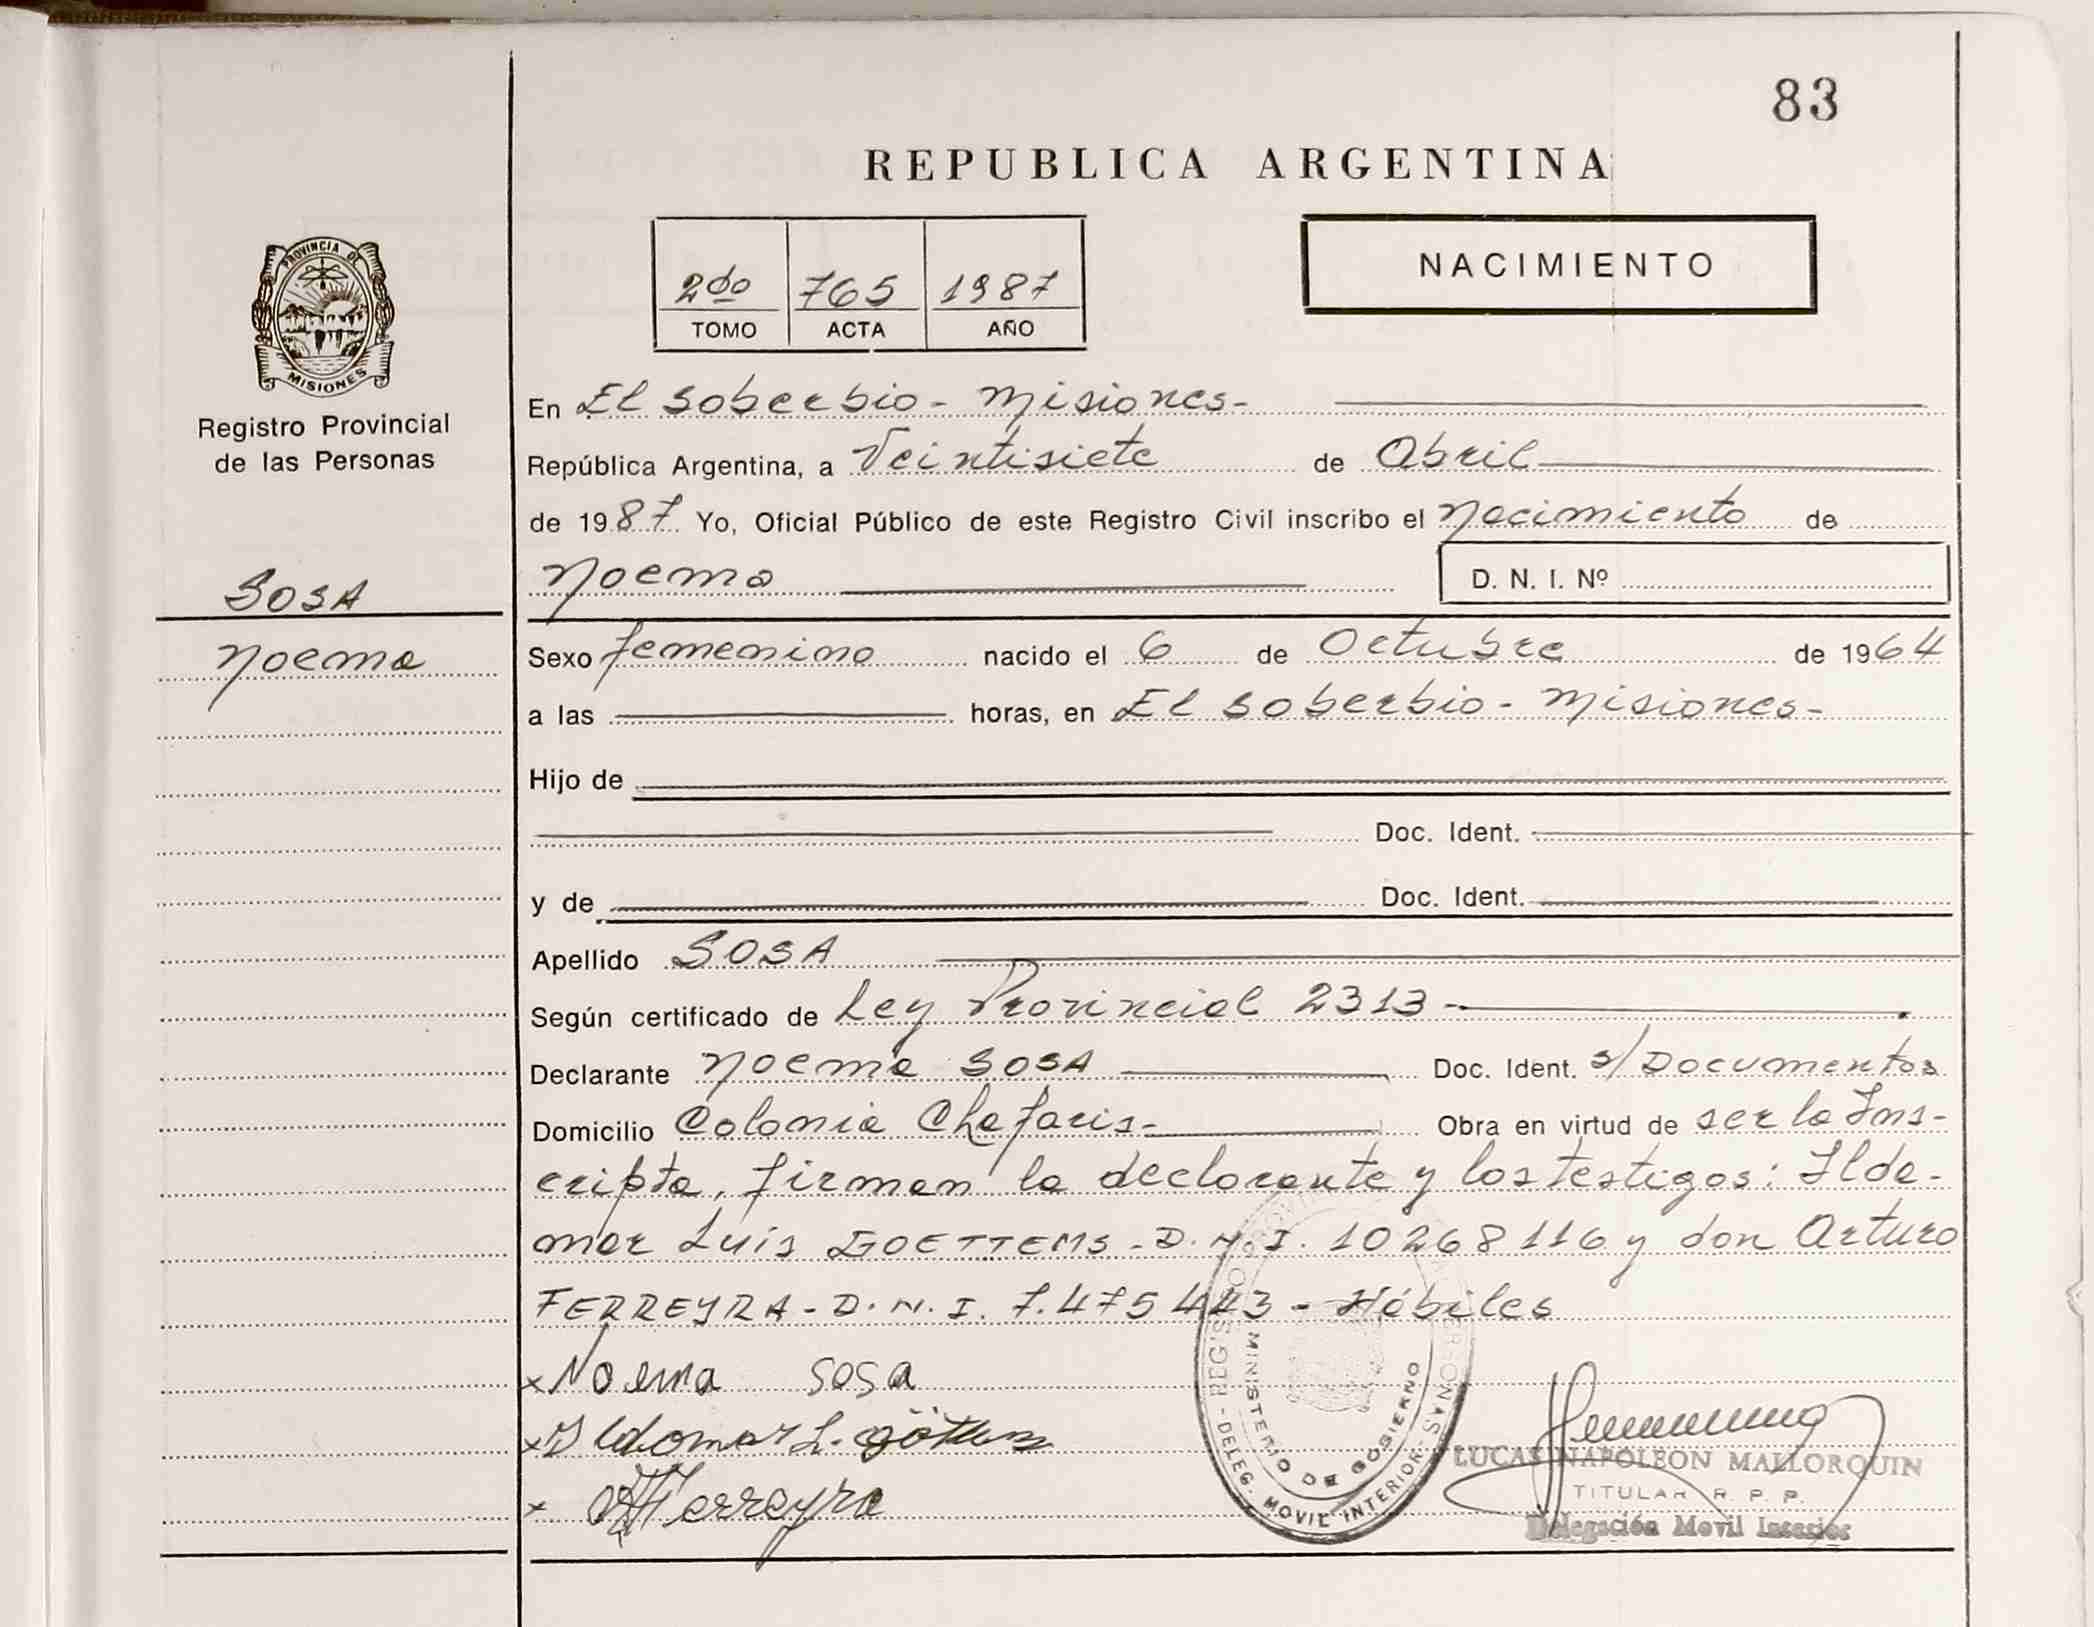 83
REPUBLICA ARGENTINA
2do 765 1987
TOMO ACTA AÑO
NACIMIENTO
PROVINCIA DE
MISIONES
Registro Provincial
de las Personas
SOSA
Noema
En El Soberbio - Misiones-
República Argentina, a Veintisiete de Abril
de 1987 Yo, Oficial Público de este Registro Civil inscribo el Nacimiento de
Noema D. N. I. Nº
Sexo femenino nacido el 6 de Octubre de 1964
a las horas, en El Soberbio - Misiones-
Hijo de
Doc. Ident.
y de Doc. Ident.
Apellido SOSA
Según certificado de Ley Provincial 2313-
Declarante Noema SOSA Doc. Ident. s/Documentos
Domicilio Colonia Chafaris- Obra en virtud de ser la Ins-
cripta, firman la declarante y los testigos: Ilde-
mar Luis GOETTEMS - D.N.I. 10268116 y don Arturo
FERREYRA - D.N.I. 7.475443 - Hábiles
x Noema sosa
x Ildomar L.
x Ferreyra
MINISTERIO DE GOBIERNO
DELEG. MOVIL INTERIOR
LUCAS NAPOLEON MALLORQUIN
TITULAR R. P. P.
Delegación Movil Interior